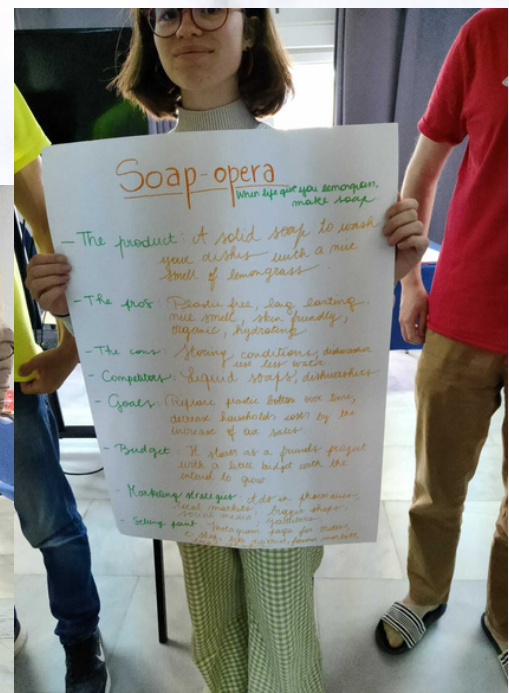 Soap-opera
When life give you lemongrass,
make soap
- The product: A solid soap to wash
your dishes with a nice
smell of lemongrass
- The pros: Plastic free, long lasting,
nice smell, skin friendly,
organic, hydrating
- The cons: Storing conditions, dishwasher
use less water
- Competitors: Liquid soaps, dishwashers
- Goals: Replace plastic bottles over time,
decrease households costs by the
increase of our sales
- Budget: It starts as a friends project
with a little budget with the
intend to grow
- Marketing strategies: Ads in pharmacies,
local markets, bigger shops,
social media
- Selling point: Instagram page for orders,
e-shop, farmers markets